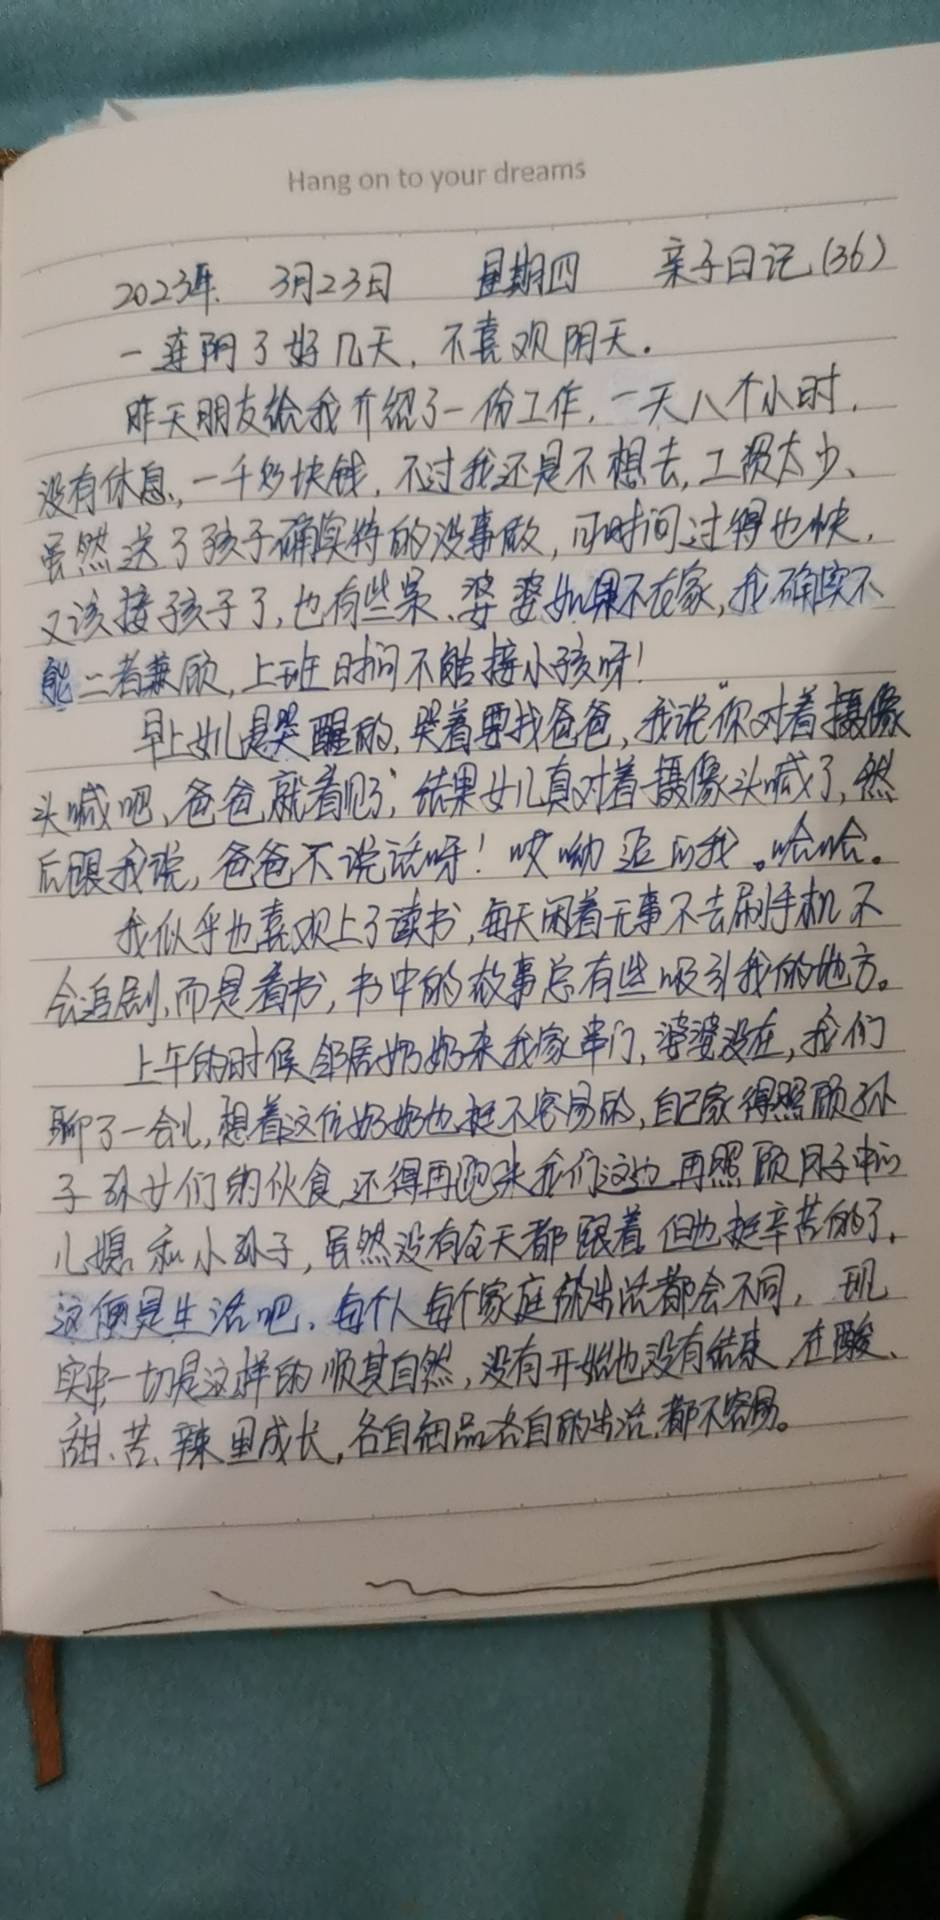 Hang on to your dreams
2023年 3月23日 星期四 亲子日记(36)
一连阴了好几天，不喜欢阴天。
昨天朋友给我介绍了一份工作，一天八个小时，
没有休息，一千多块钱，不过我还是不想去，工资太少、
虽然送了孩子确实特的没事做，可时间过得也快，
又该接孩子了，也有些累、婆婆如果不在家，我确实不
能二者兼顾，上班时间不能接小孩呀！
早上女儿是哭醒的，哭着要找爸爸，我说"你对着摄像
头喊吧，爸爸就看见了"，结果女儿真对着摄像头喊了，然
后跟我说，爸爸不说话呀！哎呦 逗的我。哈哈。
我似乎也喜欢上了读书，每天闲着无事不去刷手机不
会追剧，而是看书，书中的故事总有些吸引我的地方。
上午的时候邻居奶奶来我家串门，婆婆没在，我们
聊了一会儿，想着这位奶奶也挺不容易的，自己家得照顾孙
子孙女们的伙食，还得再跑来我们这边再照顾月子中的
儿媳和小孙子，虽然没有全天都跟着，但也挺辛苦的了，
这便是生活吧，每个人每个家庭的生活都会不同，现
实中一切是这样的顺其自然，没有开始也没有结束，在酸、
甜、苦、辣里成长，各自细品各自的生活，都不容易。